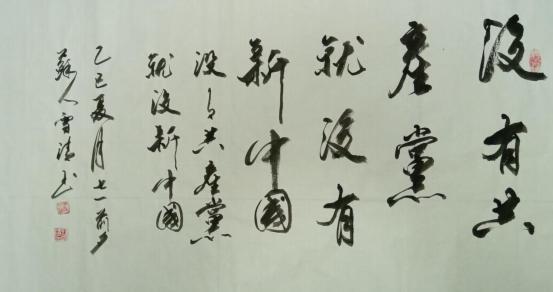 沒有共
產黨
就沒有
新中國
沒有共產黨
就沒新中國
乙巳夏月七一前夕
蘇人雪清書